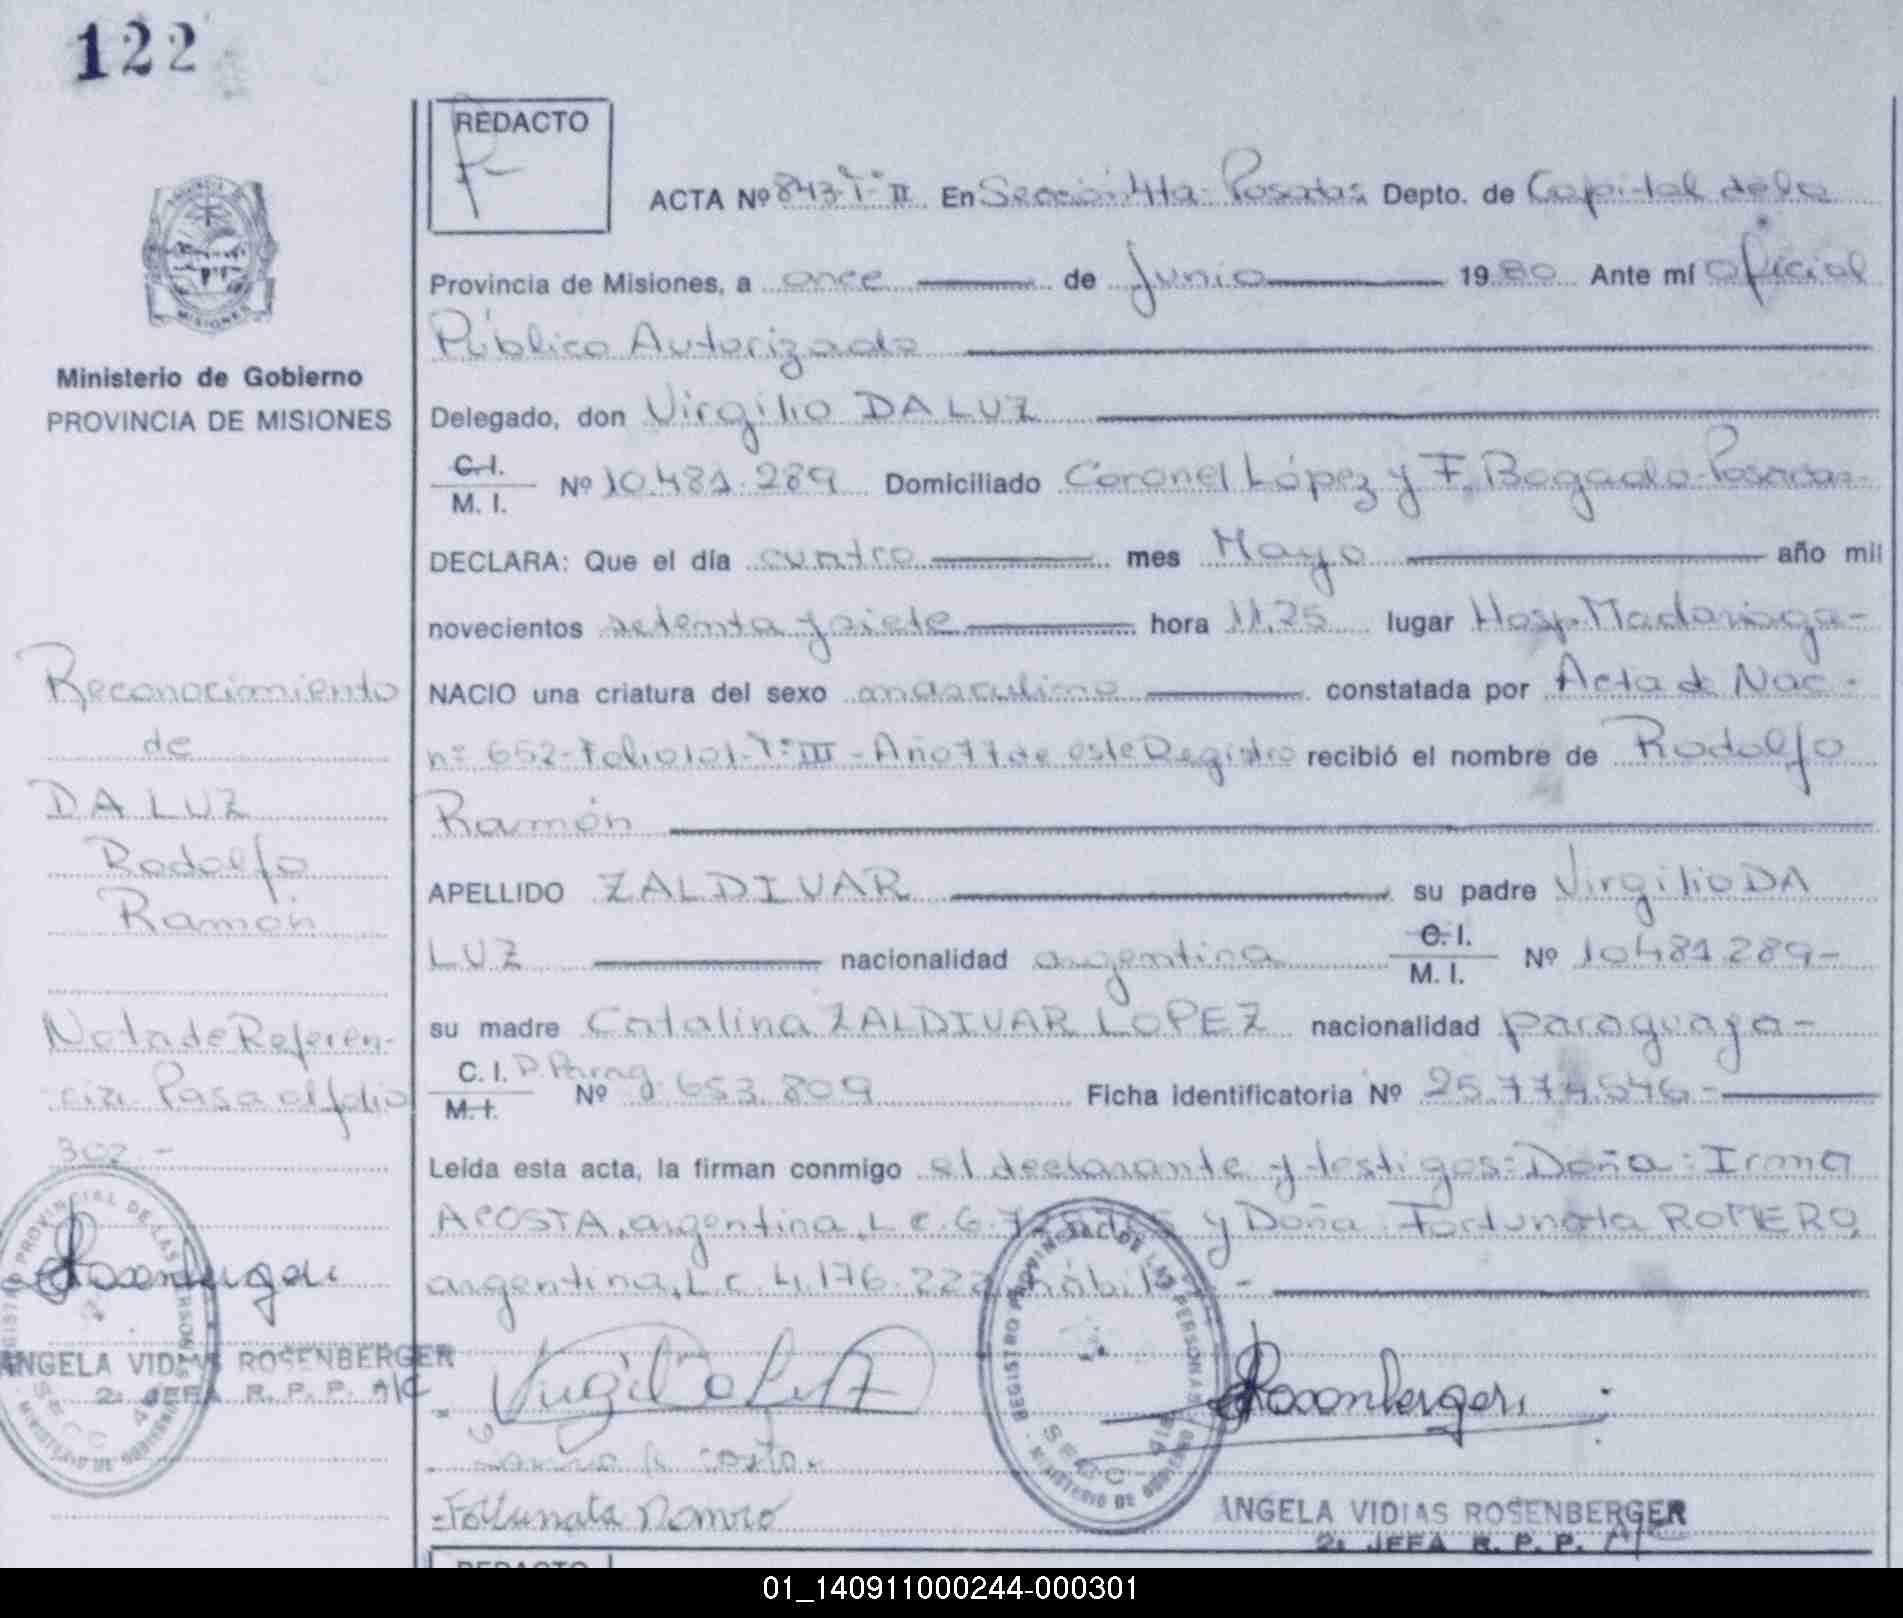 122
REDACTO
ACTA Nº 843-Tº II En Sección 4ta. Posadas Depto. de Capital de la
Provincia de Misiones, a once de Junio 1980 Ante mí Oficial
Público Autorizado
Delegado, don Virgilio DA LUZ
C.I. M.I. Nº 10.481.289 Domiciliado Coronel López y F. Bogado-Posadas-
DECLARA: Que el día cuatro mes Mayo año mil
novecientos setenta y siete hora 11,25 lugar Hosp. Madariaga-
NACIO una criatura del sexo masculino constatada por Acta de Nac-
nº 652-Folio 101-Tº III-Año 77 de este Registro recibió el nombre de Rodolfo
Ramón
APELLIDO ZALDIVAR su padre Virgilio DA
LUZ nacionalidad argentina C.I. M.I. Nº 10481.289-
su madre Catalina ZALDIVAR LOPEZ nacionalidad paraguaya-
C.I. P. Parag. M.I. Nº 653.809 Ficha identificatoria Nº 25.774.546-
Leída esta acta, la firman conmigo el declarante y testigos: Doña: Irma
ACOSTA, argentina, L.c. 6. y Doña: Fortunata ROMERO,
argentina, L.c. 4.176.222
Fortunata Romero
REGISTRO PROVINCIAL DE LAS PERSONAS
SECC. 4ta
MINISTERIO DE GOBIERNO
Rosenberger
ANGELA VIDIAS ROSENBERGER
2: JEFA R. P. P. A/C
MISIONES
Ministerio de Gobierno
PROVINCIA DE MISIONES
Reconocimiento
de
DA LUZ
Rodolfo
Ramón
Nota de Referen-
-cia: Pasa al folio
302-
REGISTRO PROVINCIAL DE LAS PERSONAS
SECC. 4ta
MINISTERIO DE GOBIERNO
Rosenberger
ANGELA VIDIAS ROSENBERGER
2: JEFA R. P. P. A/C
REDACTO
01_140911000244-000301